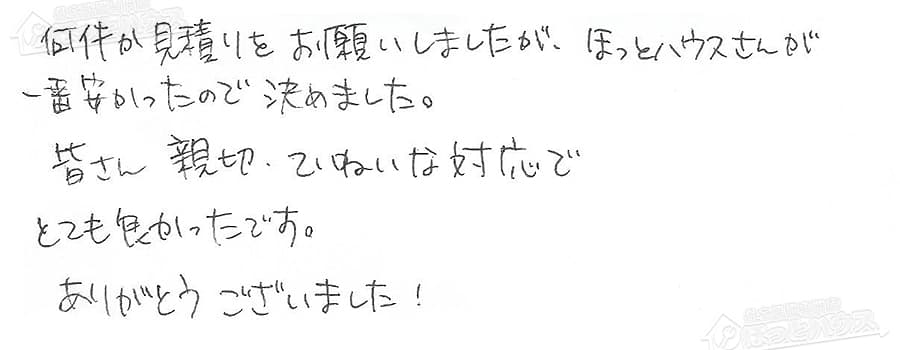 何件か見積りをお願いしましたが、ほっとハウスさんが
一番安かったので決めました。
皆さん親切、ていねいな対応で
とても良かったです。
ありがとうございました！
ほっとハウス